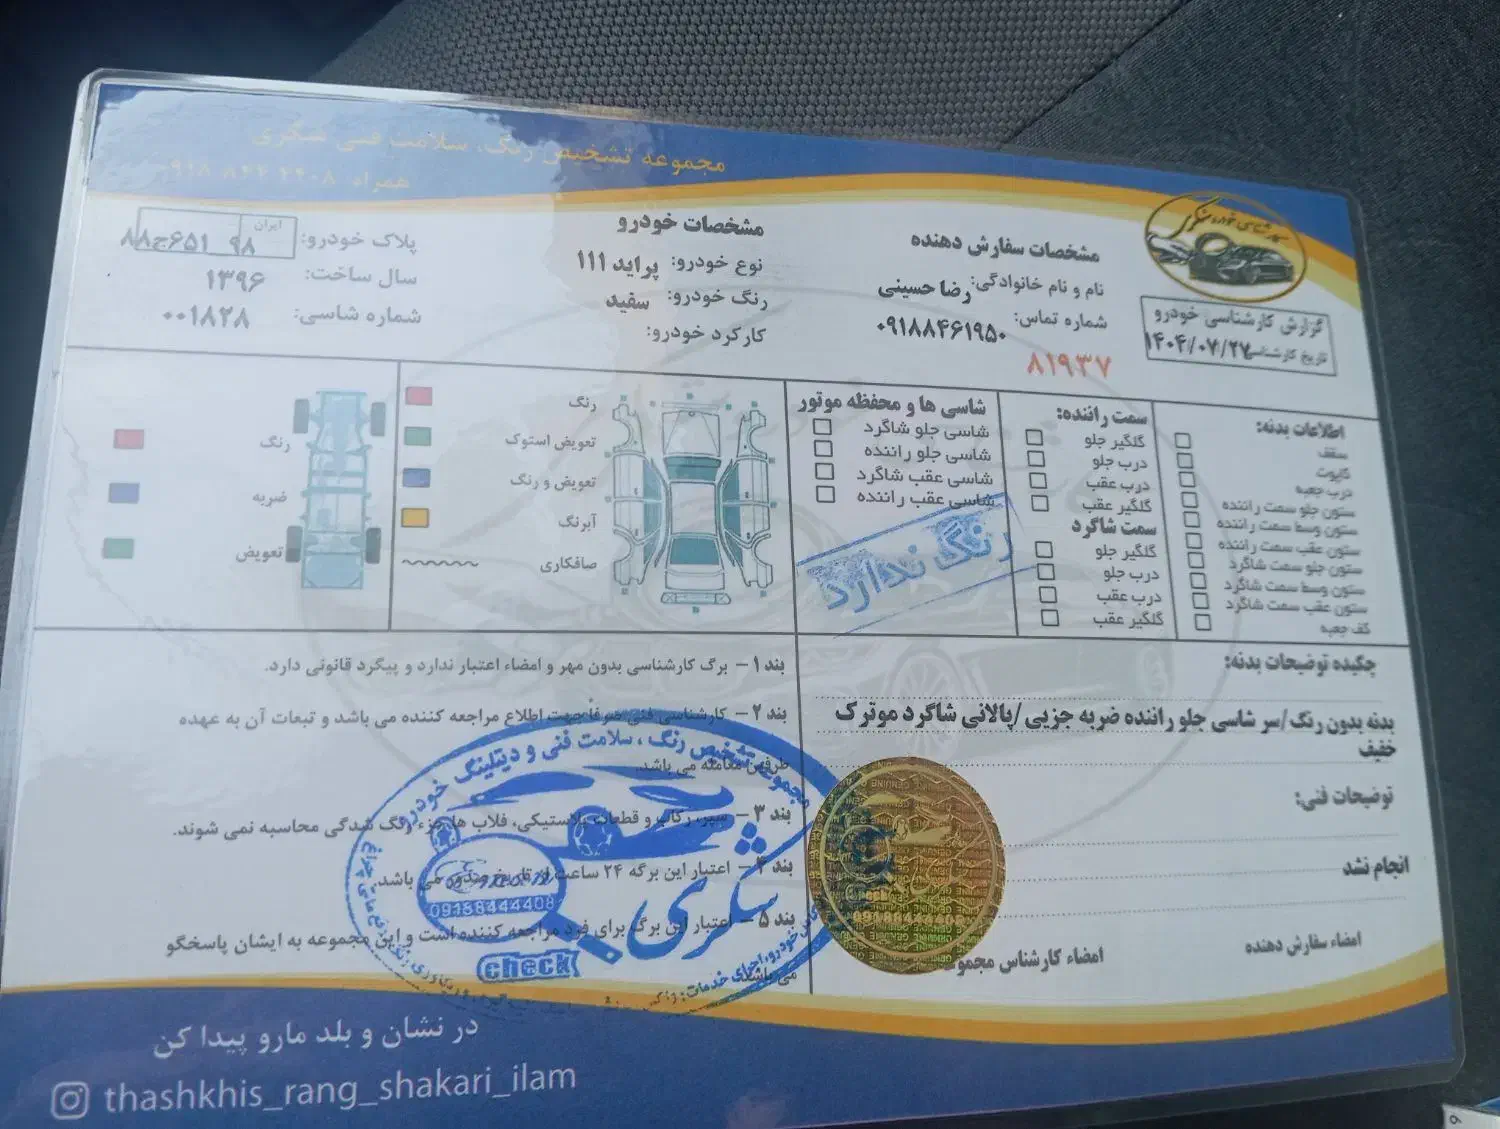 مجموعه تشخیص رنگ، سلامت فنی شکری
همراه
کارشناسی خودرو شکری
گزارش کارشناسی خودرو
تاریخ کارشناسی ۱۴۰۴/۰۷/۲۷
مشخصات سفارش دهنده
نام و نام خانوادگی: رضا حسینی
شماره تماس: ۰۹۱۸۸۴۶۱۹۵۰
۸۱۹۳۷
مشخصات خودرو
نوع خودرو: پراید ۱۱۱
رنگ خودرو: سفید
کارکرد خودرو:
پلاک خودرو: ۸۸ج۶۵۱ ایران ۹۸
سال ساخت: ۱۳۹۶
شماره شاسی: ۰۰۱۸۲۸
اطلاعات بدنه:
سقف
کاپوت
درب جعبه
ستون جلو سمت راننده
ستون وسط سمت راننده
ستون عقب سمت راننده
ستون جلو سمت شاگرد
ستون وسط سمت شاگرد
ستون عقب سمت شاگرد
کف جعبه
سمت راننده:
گلگیر جلو
درب جلو
درب عقب
گلگیر عقب
سمت شاگرد
گلگیر جلو
درب جلو
درب عقب
گلگیر عقب
شاسی ها و محفظه موتور
شاسی جلو شاگرد
شاسی جلو راننده
شاسی عقب شاگرد
شاسی عقب راننده
رنگ ندارد
رنگ
تعویض استوک
تعویض و رنگ
آبرنگ
صافکاری
رنگ
ضربه
تعویض
چکیده توضیحات بدنه:
بدنه بدون رنگ/سر شاسی جلو راننده ضربه جزیی/پالانی شاگرد موترک
خفیف
توضیحات فنی:
انجام نشد
امضاء سفارش دهنده
امضاء کارشناس مجموعه
بند ۱ – برگ کارشناسی بدون مهر و امضاء اعتبار ندارد و پیگرد قانونی دارد.
بند ۲ – کارشناسی فنی صرفا جهت اطلاع مراجعه کننده می باشد و تبعات آن به عهده
طرفین معامله می باشد.
بند ۳ – سپر، رکاب و قطعات پلاستیکی، فلاپ ها جزء رنگ شدگی محاسبه نمی شوند.
بند ۴ – اعتبار این برگه ۲۴ ساعت از تاریخ صدور می باشد.
بند ۵ – اعتبار این برگ برای فرد مراجعه کننده است و این مجموعه به ایشان پاسخگو
می باشد.
مجموعه تشخیص رنگ، سلامت فنی و دیتلینگ خودرو
شکری
09188444408
check
09188444408
GENUINE
در نشان و بلد مارو پیدا کن
thashkhis_rang_shakari_ilam